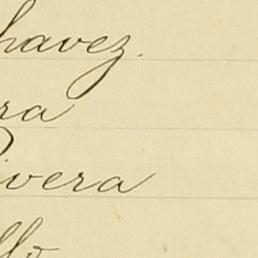 havez.
ra
ivera
llo